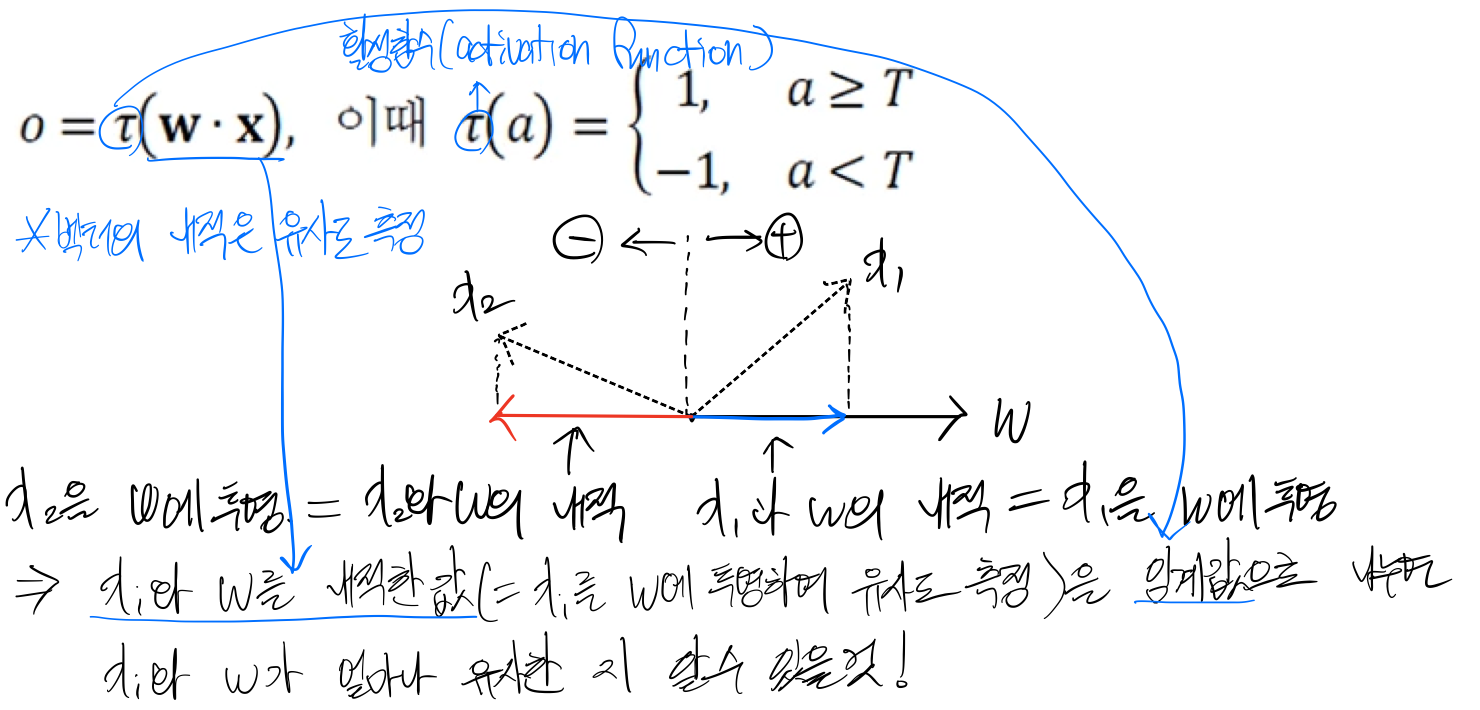 활성함수(activation function)
o = τ(w · x), 이때 τ(a) = { 1, a ≥ T
−1, a < T
※벡터의 내적은 유사도 측정
⊖ ← → ⊕
x₂ x₁
W
x₂을 w에 투영 = x₂와 w의 내적 x₁과 w의 내적 = x₁을 w에 투영
⇒ xᵢ와 w를 내적한 값(= xᵢ를 w에 투영하며 유사도 측정)은 임계값으로 나누면
xᵢ와 w가 얼마나 유사한 지 알수 있을것!